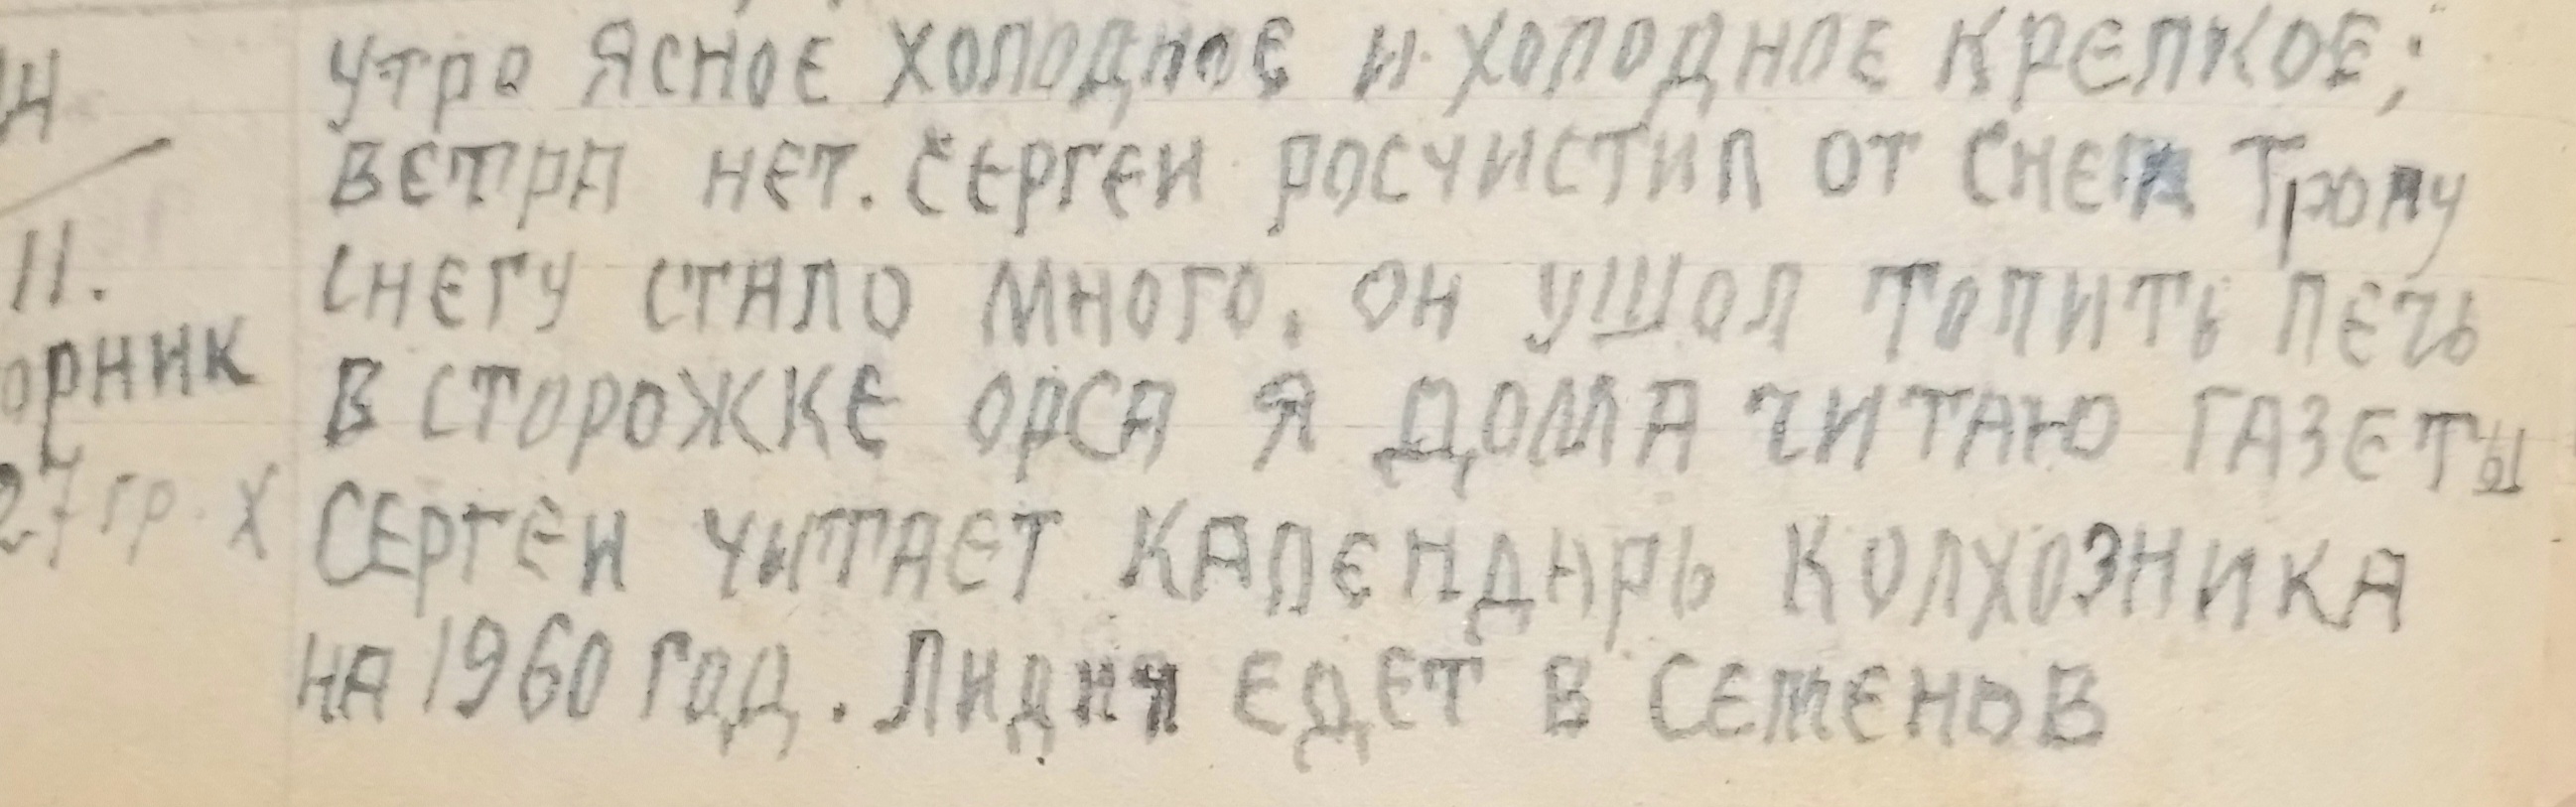 утро ясное холодное и холодное крепкое;
ветра нет. Сергеи росчистил от снега тропу
11.
снегу стало много. он ушол топить печь
орник
в сторожке орса я дома читаю газеты
27 гр. х
Сергеи читает календарь колхозника
на 1960 год. Лидия едет в Семенов